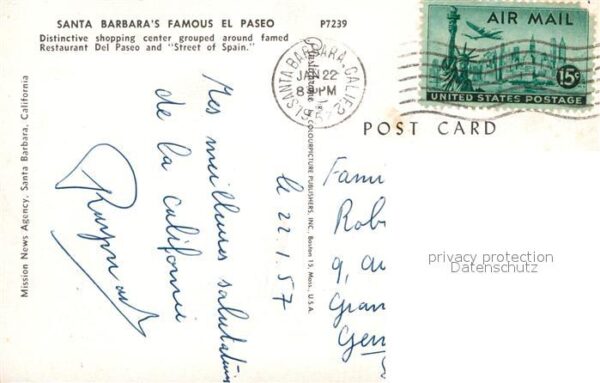 SANTA BARBARA'S FAMOUS EL PASEO P7239
Distinctive shopping center grouped around famed
Restaurant Del Paseo and "Street of Spain."
Mission News Agency, Santa Barbara, California
Mes meilleures salutations
de la californie
Raymond
le 22.1.57
COLOURPICTURE PUBLISHERS, INC., Boston 15, Mass., U.S.A.
SANTA BARBARA, CALIF.
JAN 22
8 PM
AIR MAIL
15¢
UNITED STATES POSTAGE
POST CARD
Fami
Rob
9, au
Gran
Gen
privacy protection
Datenschutz